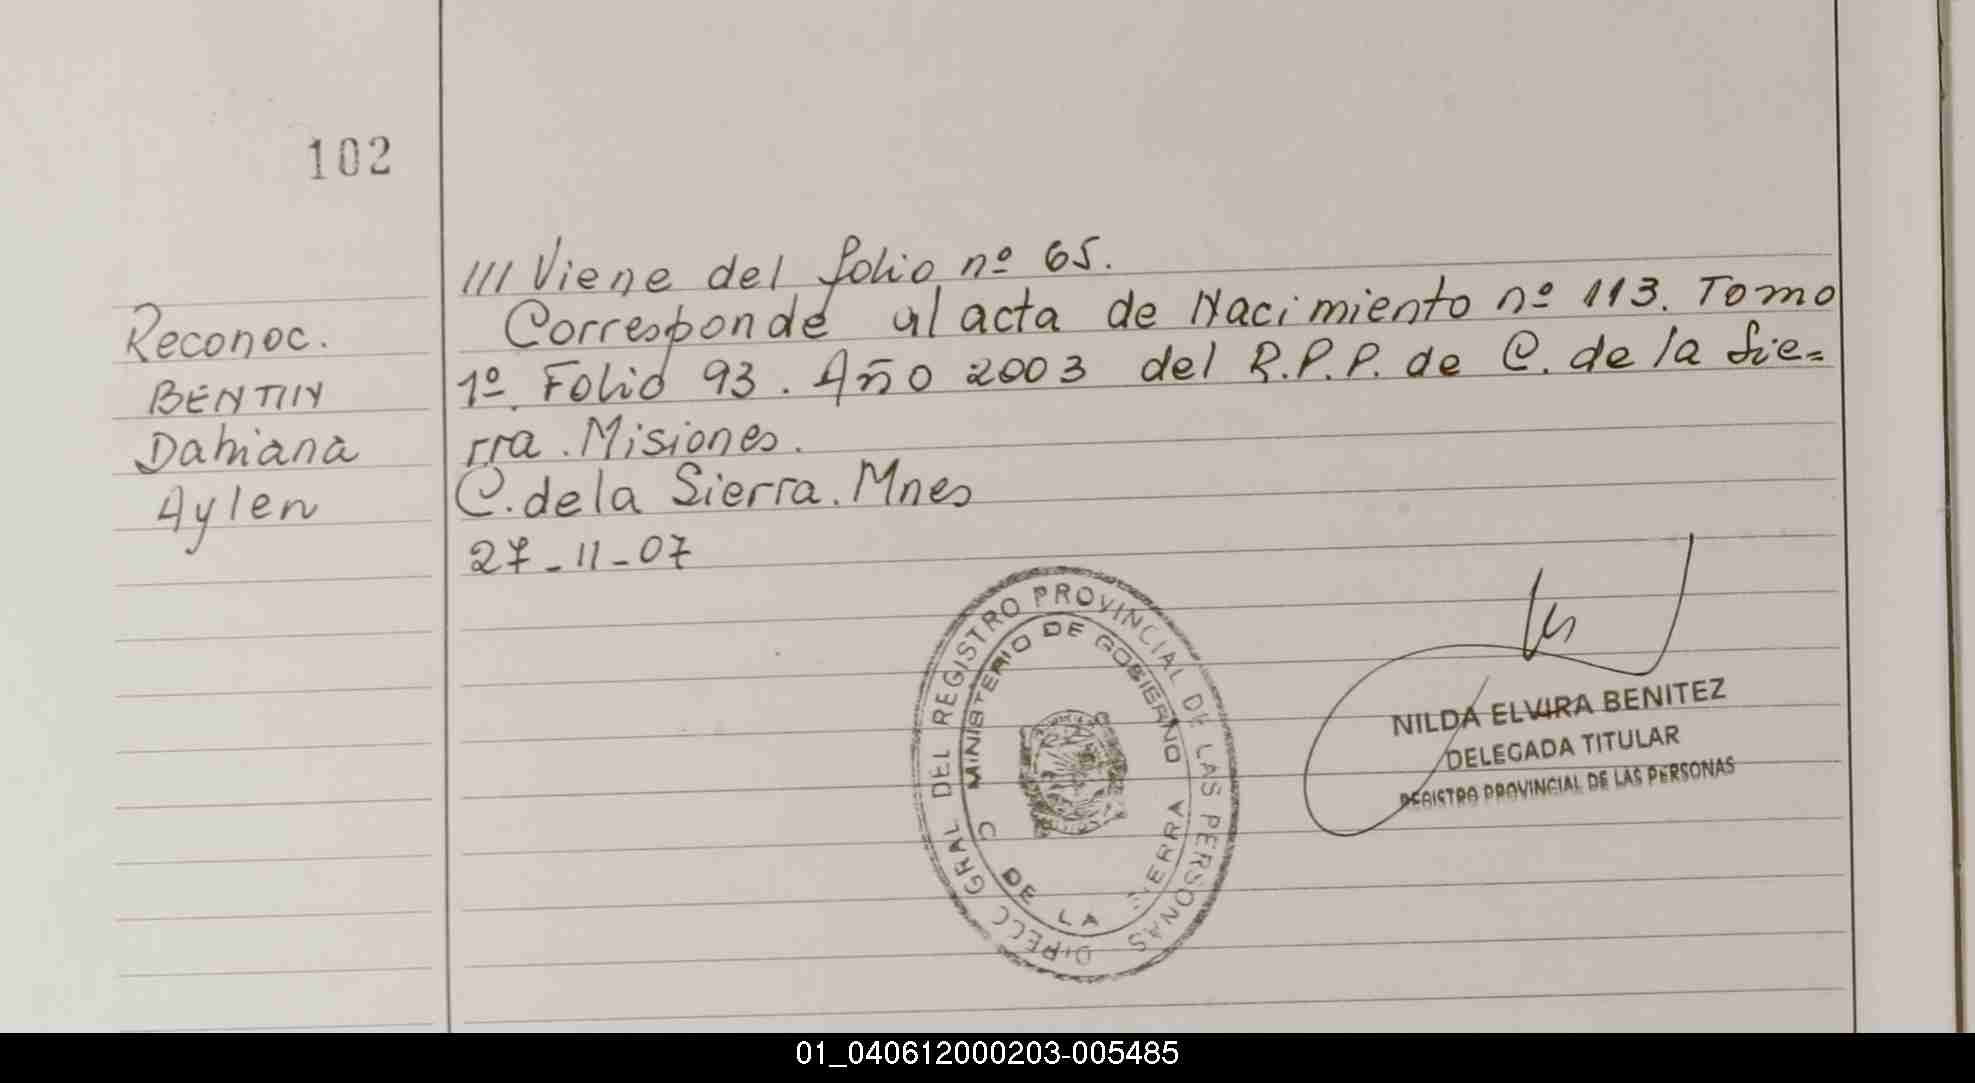 102
/// Viene del folio nº 65.
Reconoc.
Corresponde al acta de Nacimiento nº 113. Tomo
BENTIN
1º. Folio 93. Año 2003 del R.P.P. de C. de la Sie=
Dahiana
rra. Misiones.
Aylen
C. de la Sierra. Mnes
27-11-07
DIRECC GRAL DEL REGISTRO PROVINCIAL DE LAS PERSONAS
MINISTERIO DE GOBIERNO
C DE LA SIERRA
NILDA ELVIRA BENITEZ
DELEGADA TITULAR
REGISTRO PROVINCIAL DE LAS PERSONAS
01_040612000203-005485